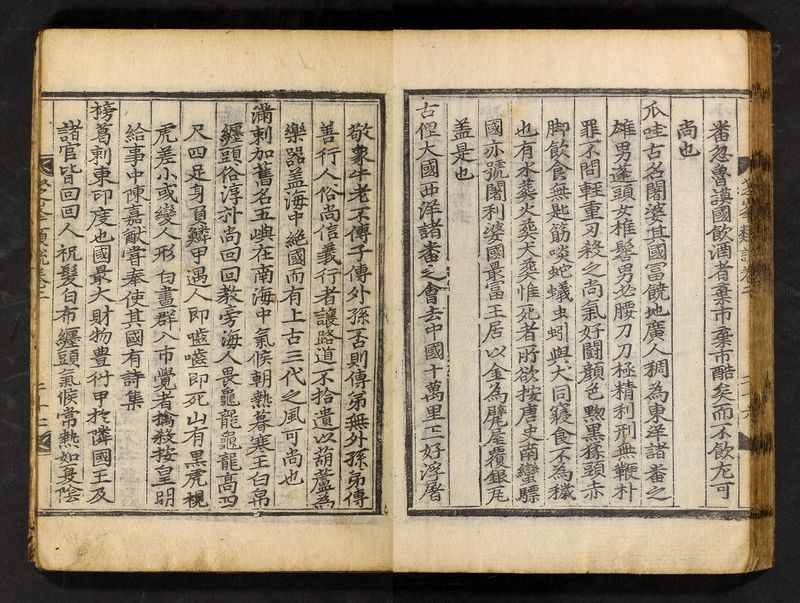 番忽魯謨國飮酒者棄市棄市酷矣而不飮尤可
尚也
爪哇古名闍婆其國冨饒地廣人稠為東洋諸畨之
雄男蓬頭女椎髻男必腰刀刀極精利刑無鞭朴
罪不問輕重刃殺之尚氣好鬪顔色黝黒猱頭赤
脚飮食無匙筯啖蛇蟻虫蚓與犬同寢食不為穢
也有水葬火葬犬葬惟死者所欲按唐史南蠻驃
國亦號闍利婆國最富王居以金為甓屋覆銀瓦
盖是也
古俚大國西洋諸畨之會去中國十萬里王好浮屠
敬象牛老不傳子傳外孫否則傳弟無外孫弟傳
善行人俗尚信義行者讓路道不拾遺以葫蘆為
樂器盖海中絶國而有上古三代之風可尚也
滿剌加舊名五嶼在南海中氣候朝熱暮寒王白帛
纏頭俗淳朴尚回回教旁海人畏龜龍龜龍高四
尺四足身負鱗甲遇人即嚙嚙即死山有黒虎視
虎差小或變人形白晝群入市覺者擒殺按皇明
給事中陳嘉猷甞奉使其國有詩集
榜葛剌東印度也國最大財物豊衍甲於隣國王及
諸官皆回回人祝髪白布纏頭氣候常熱如夏陰
芝峯類說卷二